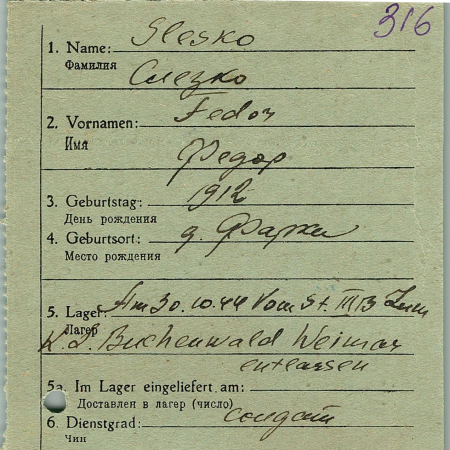 316
Slesko
1. Name:
Фамилия
Слезко
Fedor
2. Vornamen:
Имя
Федор
3. Geburtstag: 1912
День рождения
4. Geburtsort: д. Фарки
Место рождения
5. Lager: Am 30.10.44 Vom St. III B Zum
Лагер
K.L. Buchenwald Weimar
entlassen
5a. Im Lager eingeliefert am:
Доставлен в лагер (число)
6. Dienstgrad: солдат
Чин